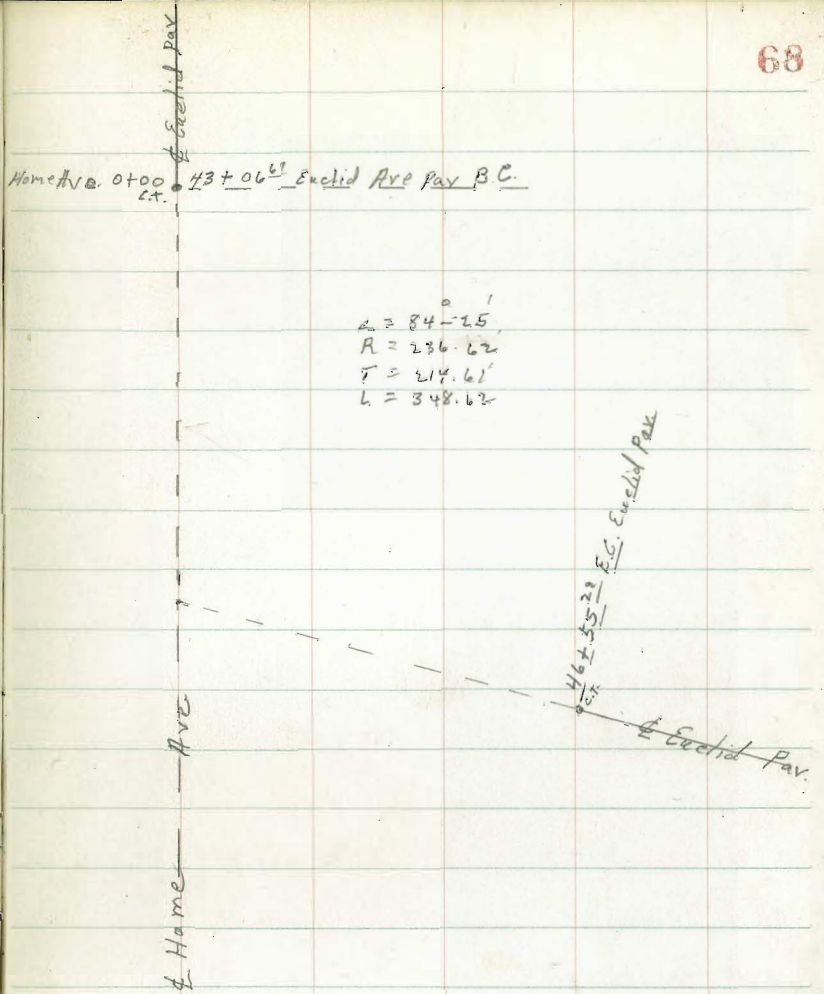 68
℄ Euclid Pav
Home Ave. 0+00 43+06⁶⁷ Euclid Ave Pav B.C.
C.T.
∠ = 84°-25'
R = 236.62
T = 214.61'
L = 348.62
46+55²⁸ E.C. Euclid Pav.
C.T.
℄ Euclid Pav.
℄ Home Ave